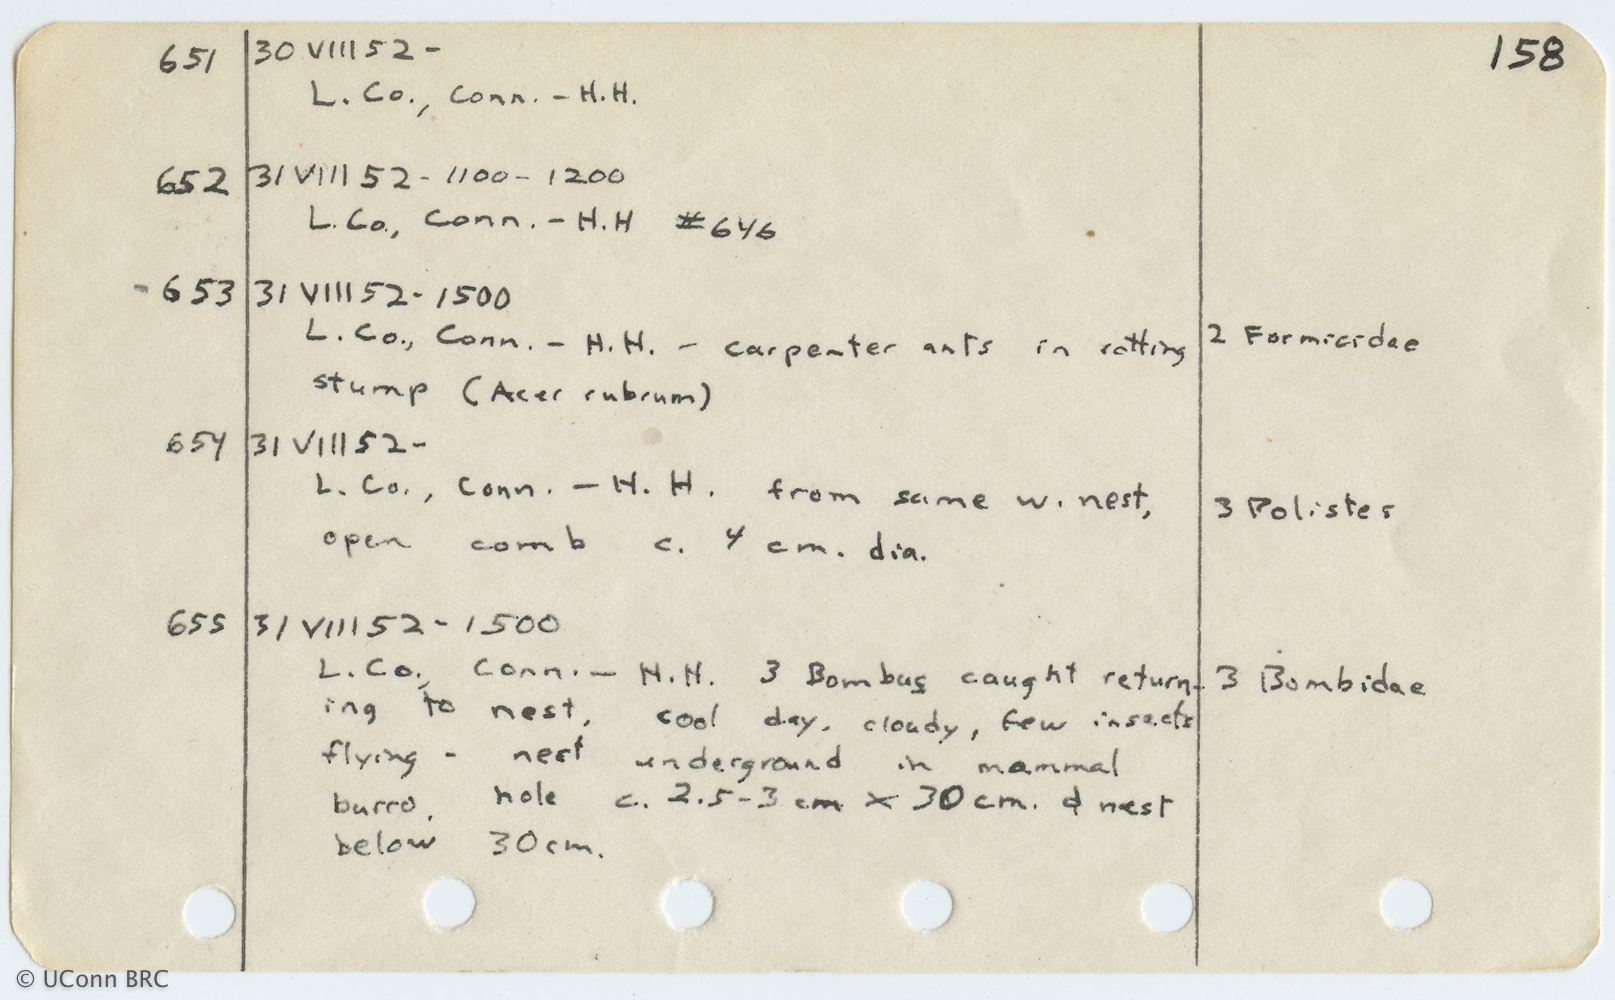 158
651 30 VIII 52 -
L. Co., Conn. - H.H.
652 31 VIII 52 - 1100 - 1200
L. Co., Conn. - H.H #646
- 653 31 VIII 52 - 1500
L. Co., Conn. - H.H. - carpenter ants in rotting 2 Formicidae
stump (Acer rubrum)
654 31 VIII 52 -
L. Co., Conn. - H. H. from same w. nest, 3 Polistes
open comb c. 4 cm. dia.
655 31 VIII 52 - 1500
L. Co., Conn. - H.H. 3 Bombus caught return- 3 Bombidae
ing to nest, cool day, cloudy, few insects
flying - nest underground in mammal
burro, hole c. 2.5-3 cm x 30 cm. & nest
below 30 cm.
© UConn BRC